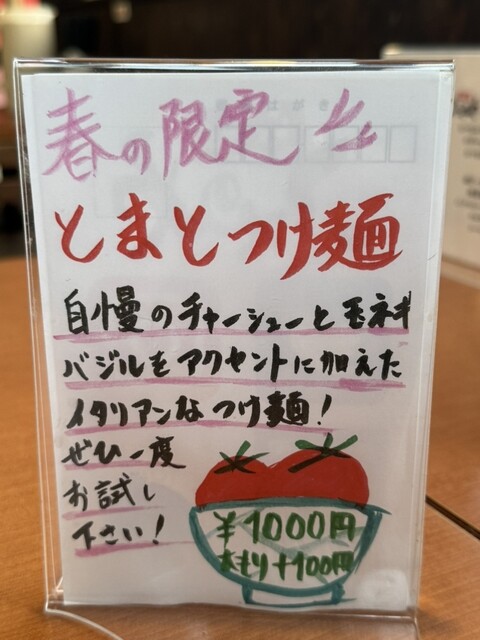 春の限定
とまとつけ麺
自慢のチャーシューと玉ネギ
バジルをアクセントに加えた
イタリアンなつけ麺!
ぜひ一度
お試し
下さい!
¥1000円
大もり+100円